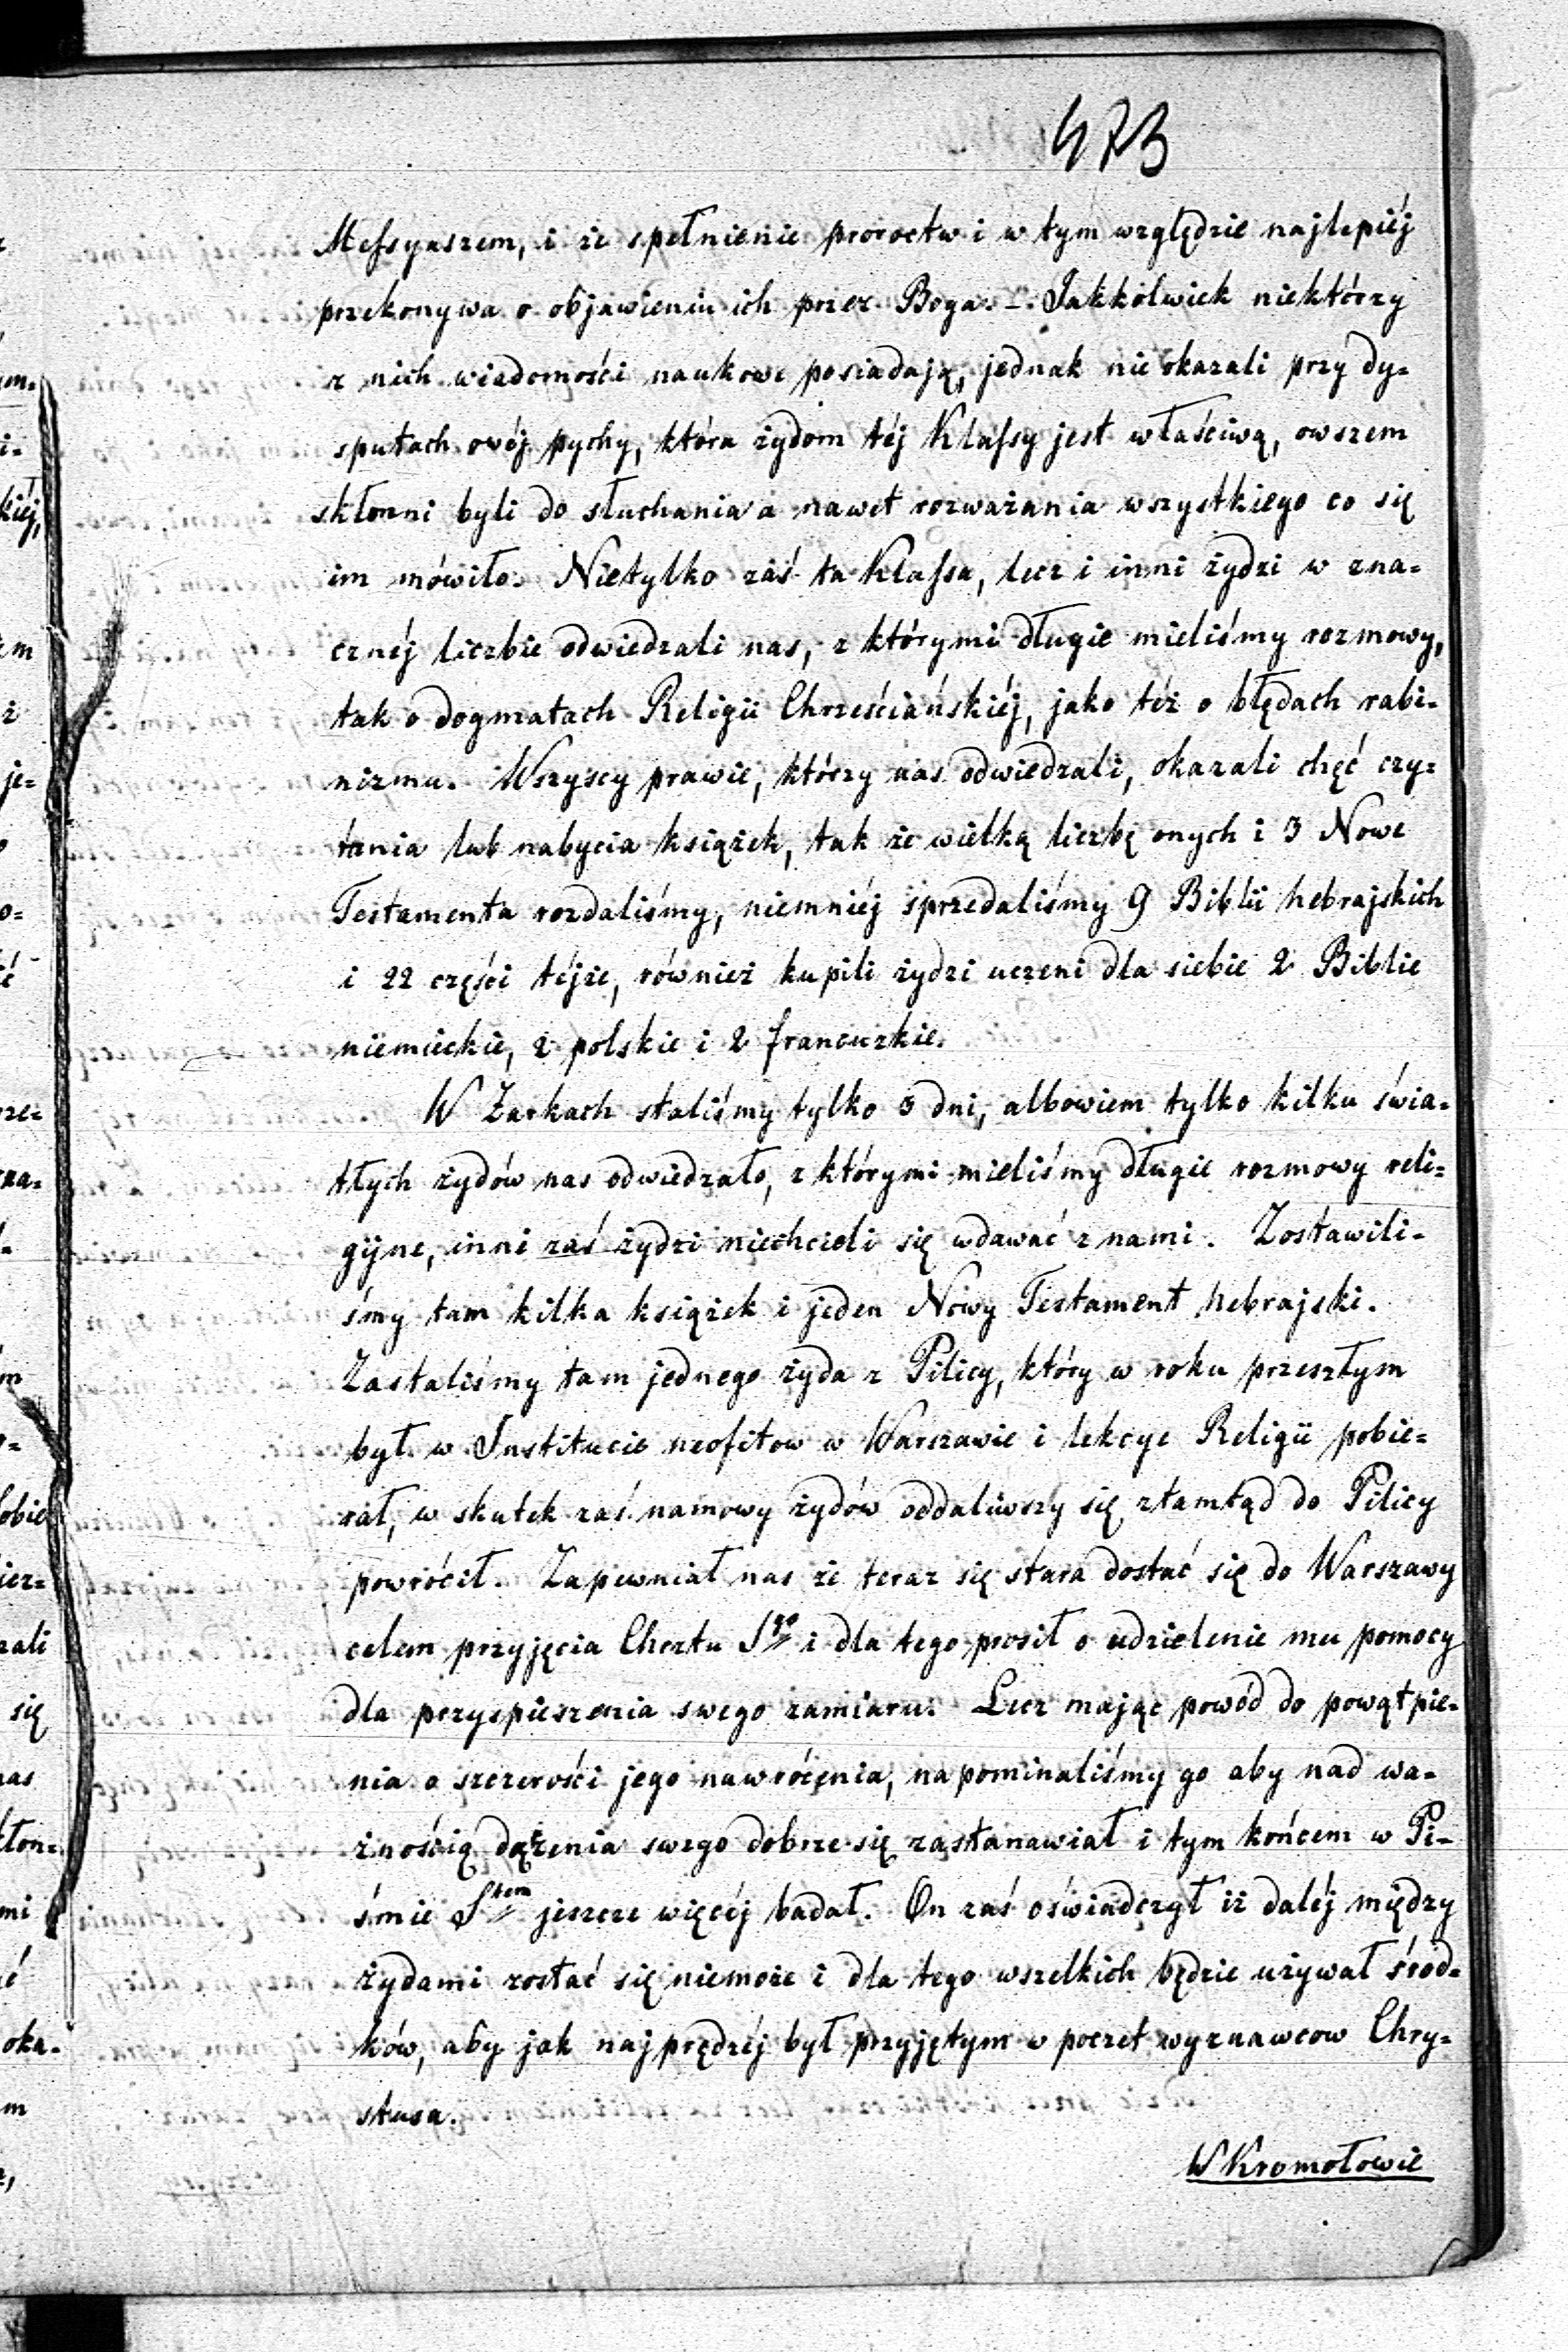 473
Messyaszem, i że spełnienie proroctw i w tym względzie najlepiéj
przekonywa o objawieniu ich przez Boga. – Jakkolwiek niektórzy
z nich wiadomości naukowe posiadają, jednak nie okazali przy dy=
sputach owéj pychy, która żydom téj Klassy jest właściwą, owszem
skłonni byli do słuchania a nawet rozważania wszystkiego co się
im mówiło. Nietylko zaś ta Klassa, lecz i inni żydzi w zna=
cznéj liczbie odwiedzali nas, z którymi długie mieliśmy rozmowy,
tak o dogmatach Religii Chrześciańskiéj, jako też o błędach rabi=
nizmu. Wszyscy prawie, którzy nas odwiedzali, okazali chęć czy=
tania lub nabycia książek, tak że wielką liczbę onych i 3 Nowe
Testamenta rozdaliśmy, niemniéj sprzedaliśmy 9 Biblii hebrajskich
i 22 części téjże, również kupili żydzi uczeni dla siebie 2 Biblie
niemieckie, 2 polskie i 2 francuzkie.
W Żarkach staliśmy tylko 3 dni, albowiem tylko kilku świa=
tłych żydów nas odwiedzało, z którymi mieliśmy długie rozmowy reli=
gijne, inni zaś żydzi niechcieli się wdawać z nami. Zostawili=
śmy tam kilka książek i jeden Nowy Testament hebrajski.
Zastaliśmy tam jednego żyda z Pilicy, który w roku przeszłym
był w Institucie neofitow w Warszawie i lekcye Religii pobie=
rał, w skutek zaś namowy żydów oddaliwszy się ztamtąd do Pilicy
powrócił. Zapewniał nas że teraz się stara dostać się do Warszawy
celem przyjęcia Chrztu Sgo i dla tego prosił o udzielenie mu pomocy
dla przyspieszenia swego zamiaru. Lecz mając powód do powątpie=
nia o szczerości jego nawrócenia, napominaliśmy go aby nad wa=
żnością dążenia swego dobrze się zastanawiał i tym końcem w Pi=
śmie Stem jeszcze więcéj badał. On zaś oświadczył iż daléj między
żydami zostać się niemoże i dla tego wszelkich będzie używał środ=
ków, aby jak najprędzéj był przyjętym w poczet wyznawcow Chry=
stusa.
W Kromołowie